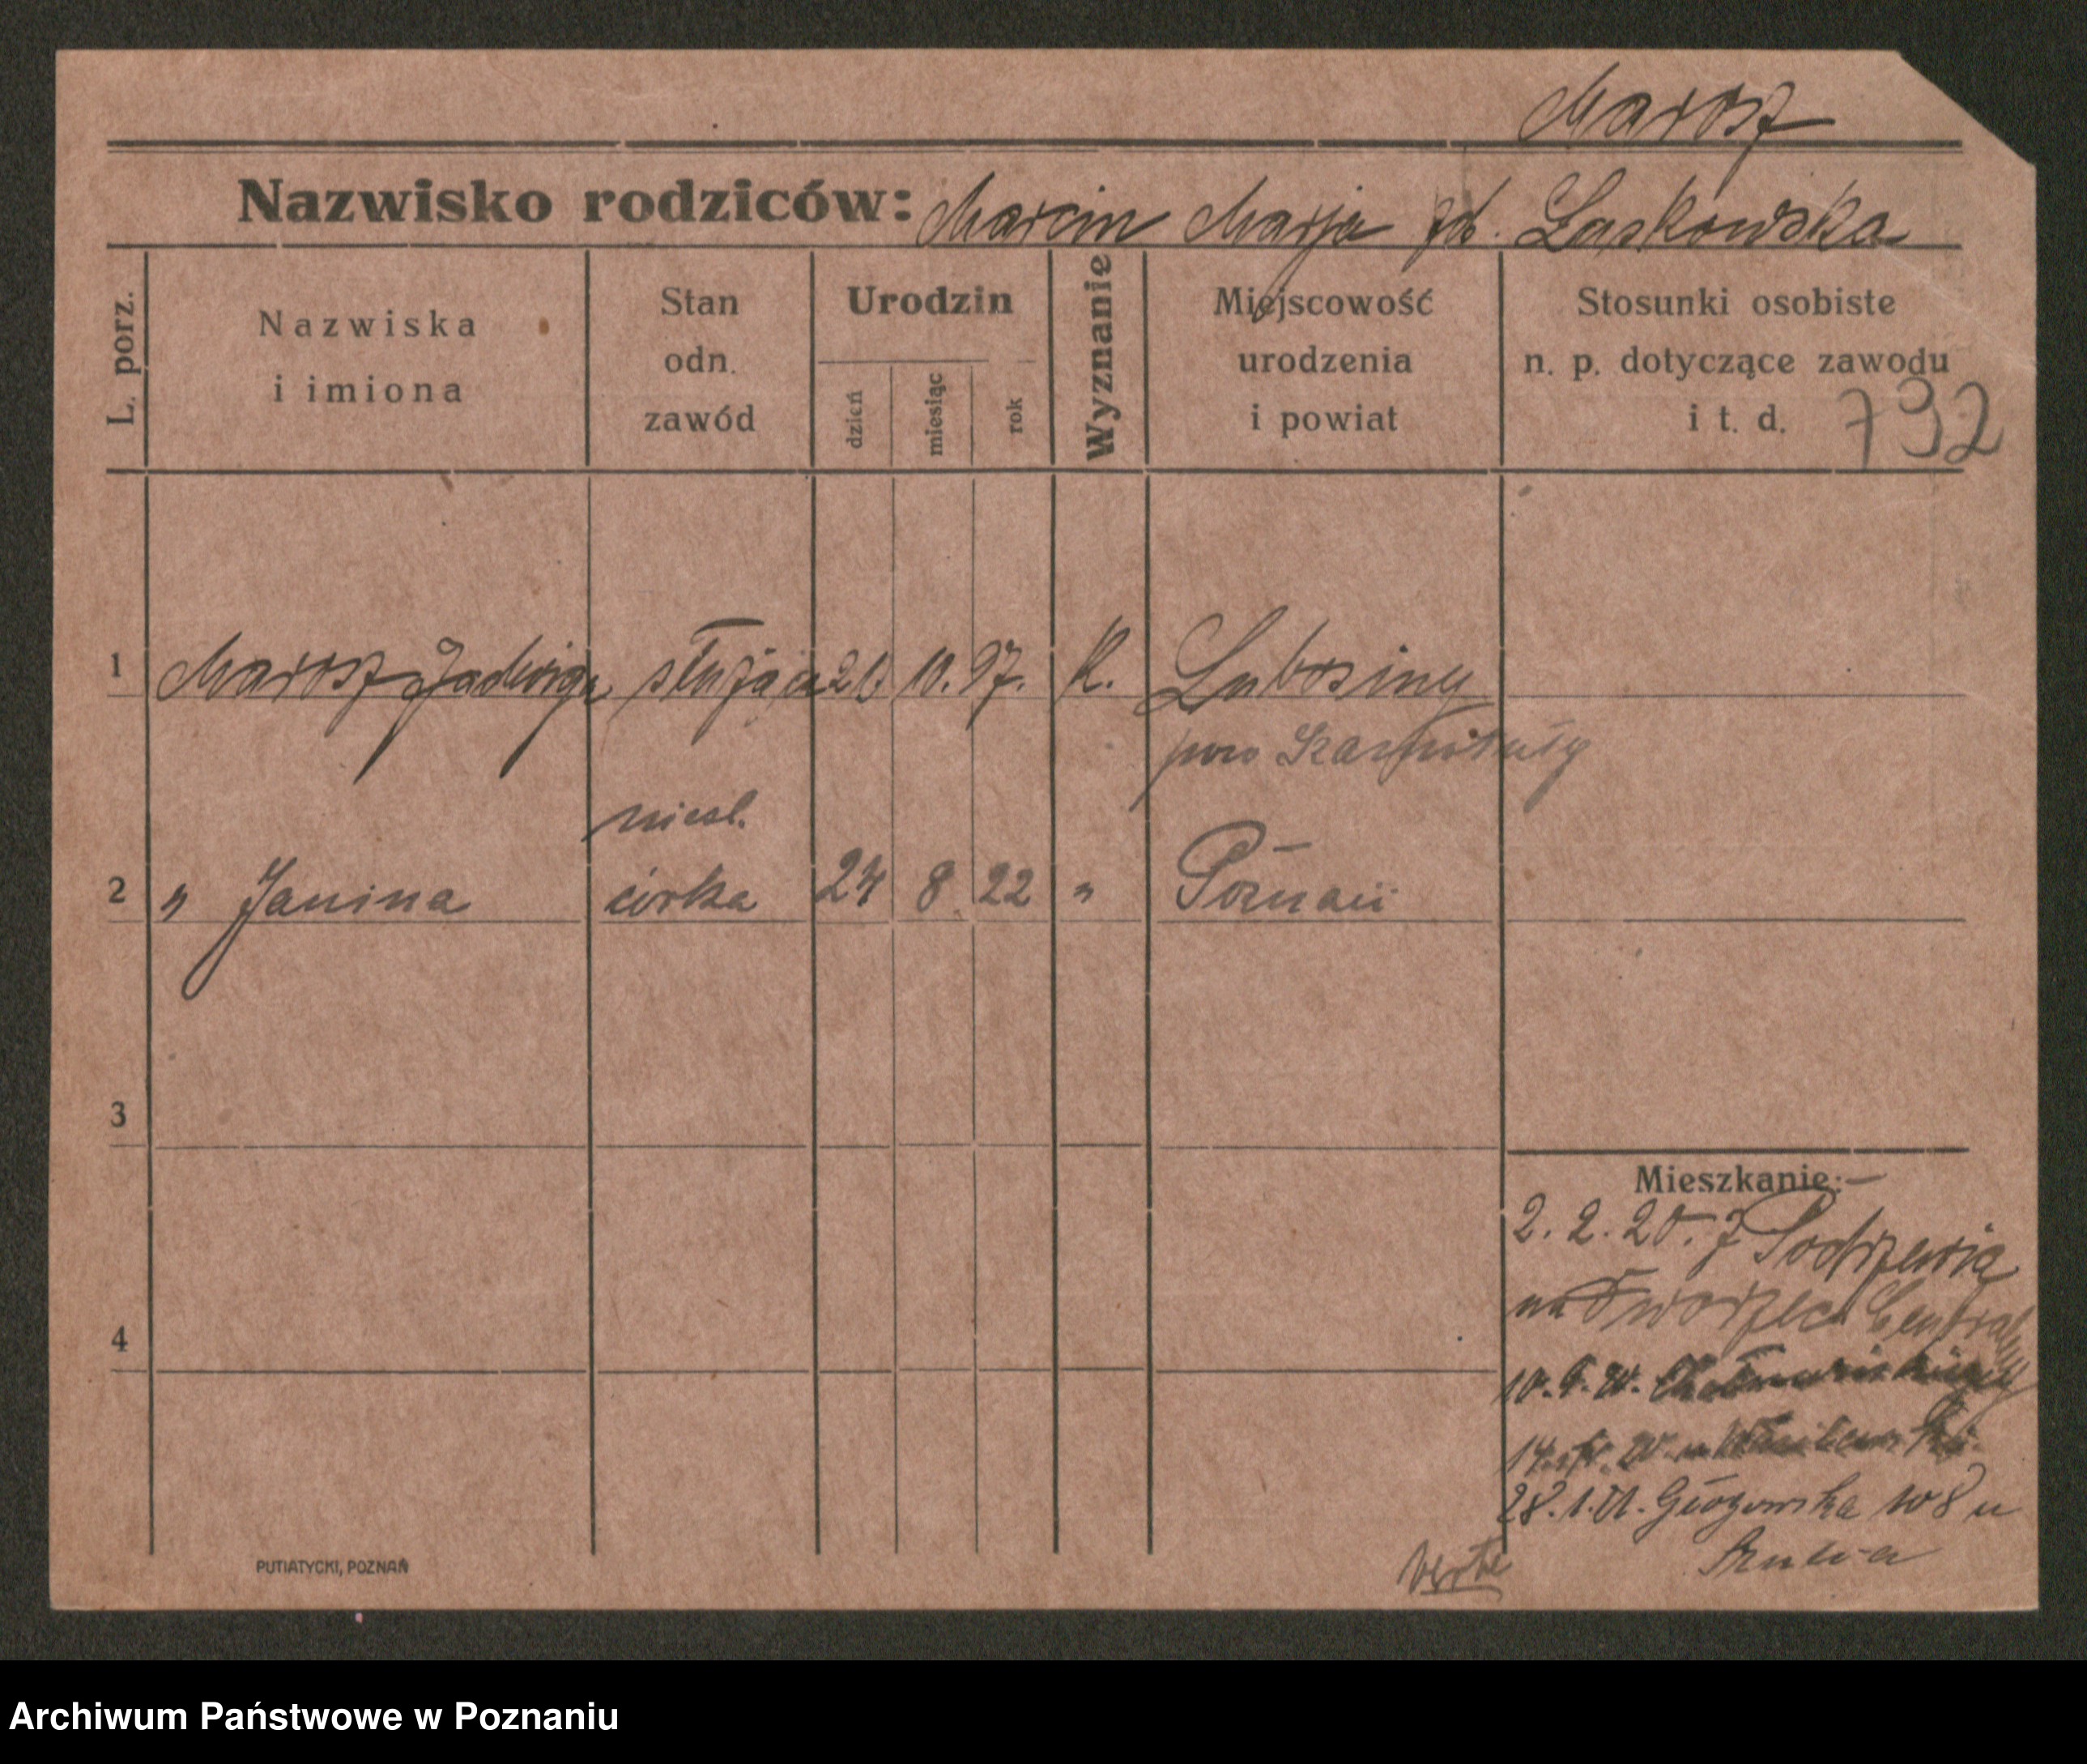 Marosz
Nazwisko rodziców: Marcin Marja zd. Laskowska
L. porz.
Nazwiska
i imiona
Stan
odn.
zawód
Urodzin
dzień
miesiąc
rok
Wyznanie
Miejscowość
urodzenia
i powiat
Stosunki osobiste
n. p. dotyczące zawodu
i t. d.
792
1 Marosz Jadwiga służąca 10. 97. K. Lubosiny
pow Szamotuły
nieśl.
2 " Janina córka 24 8 22 " Poznań
3
Mieszkanie:
2. 2. 20. z Podrzewia
na Dworzec Centralny
4
28. 1. 21. Głogowska 108 u
PUTIATYCKI, POZNAŃ
verte
Archiwum Państwowe w Poznaniu